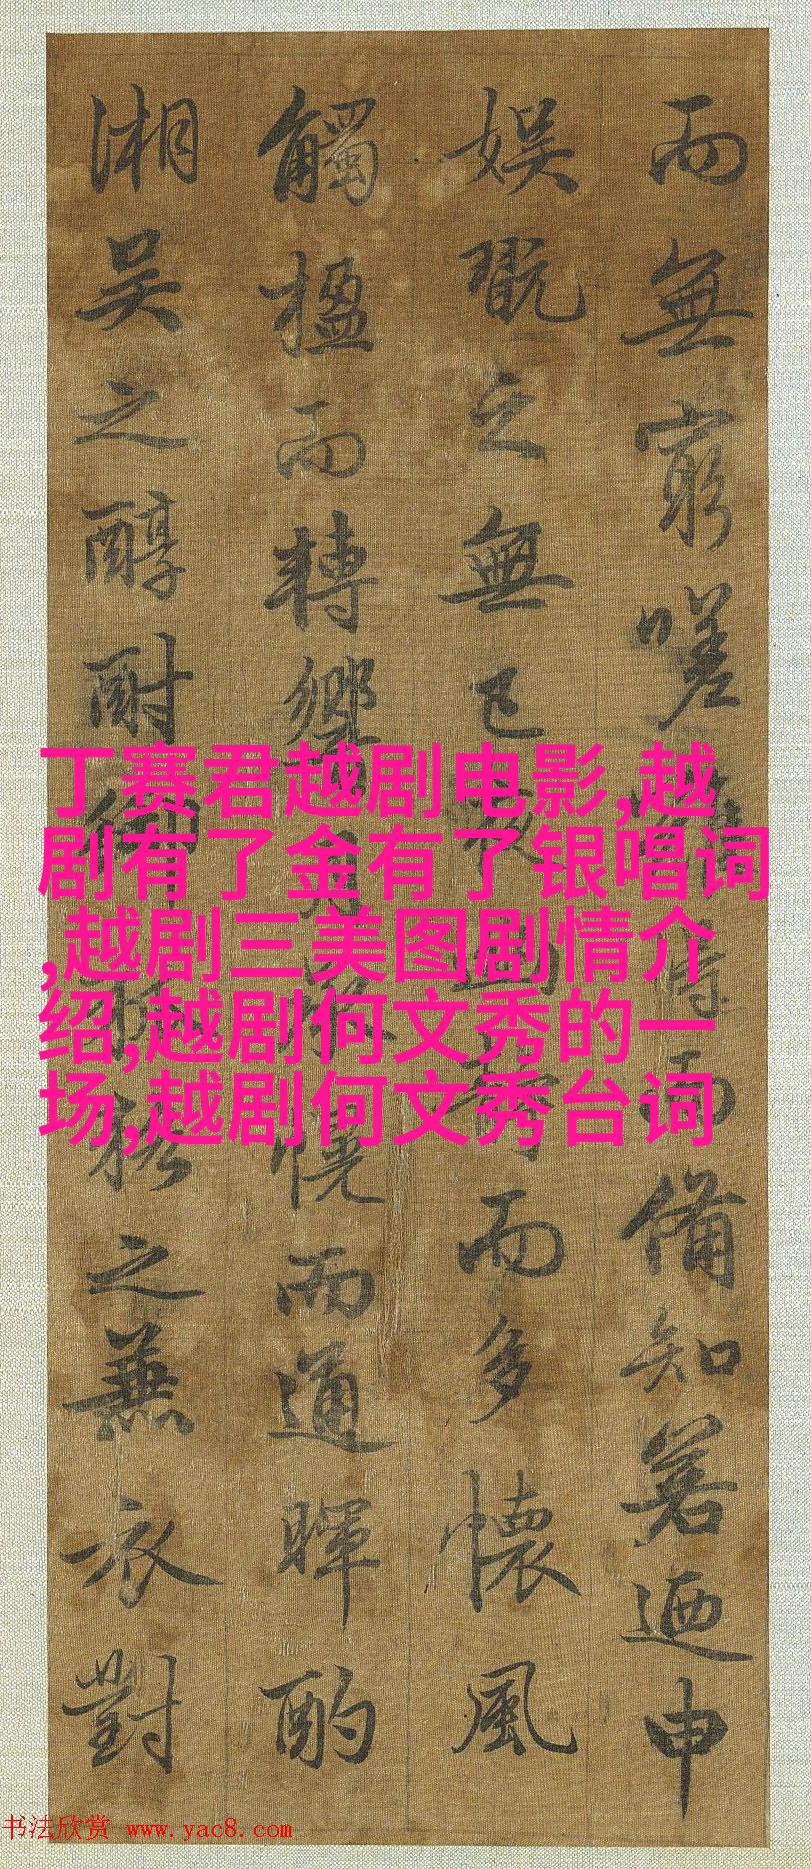 而無窮嗟時而備知著迺申
娛翫之無已而多懷風
觸楹而轉響月慌而通暉酌
湘吴之醇酎之無衣對
丁赛君越剧电影,越
剧有了金有了银唱词
,越剧三美图剧情介
绍,越剧何文秀的一
场,越剧何文秀台词
书法欣赏 www.yac8.com